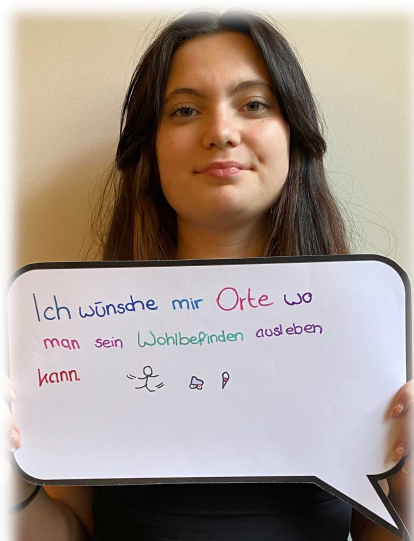 Ich wünsche mir Orte wo
man sein Wohlbefinden ausleben
kann.